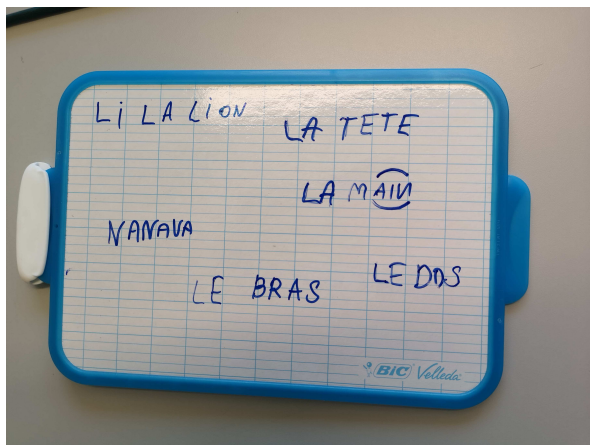 Li LA LiON
LA TETE
LA MAIN
NANAVA
LE BRAS
LE DOS
BIC Velleda